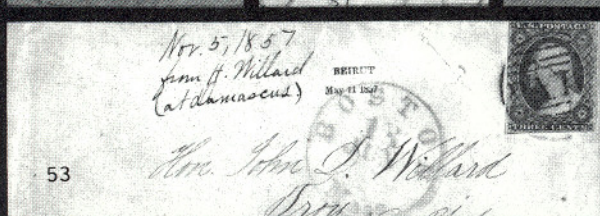 Nov. 5, 1857
from H. Willard
(at damascus)
BEIRUT
May 11 1857
U.S. POSTAGE
THREE CENTS
BOSTO
53
Hon. John D. Willard
Troy